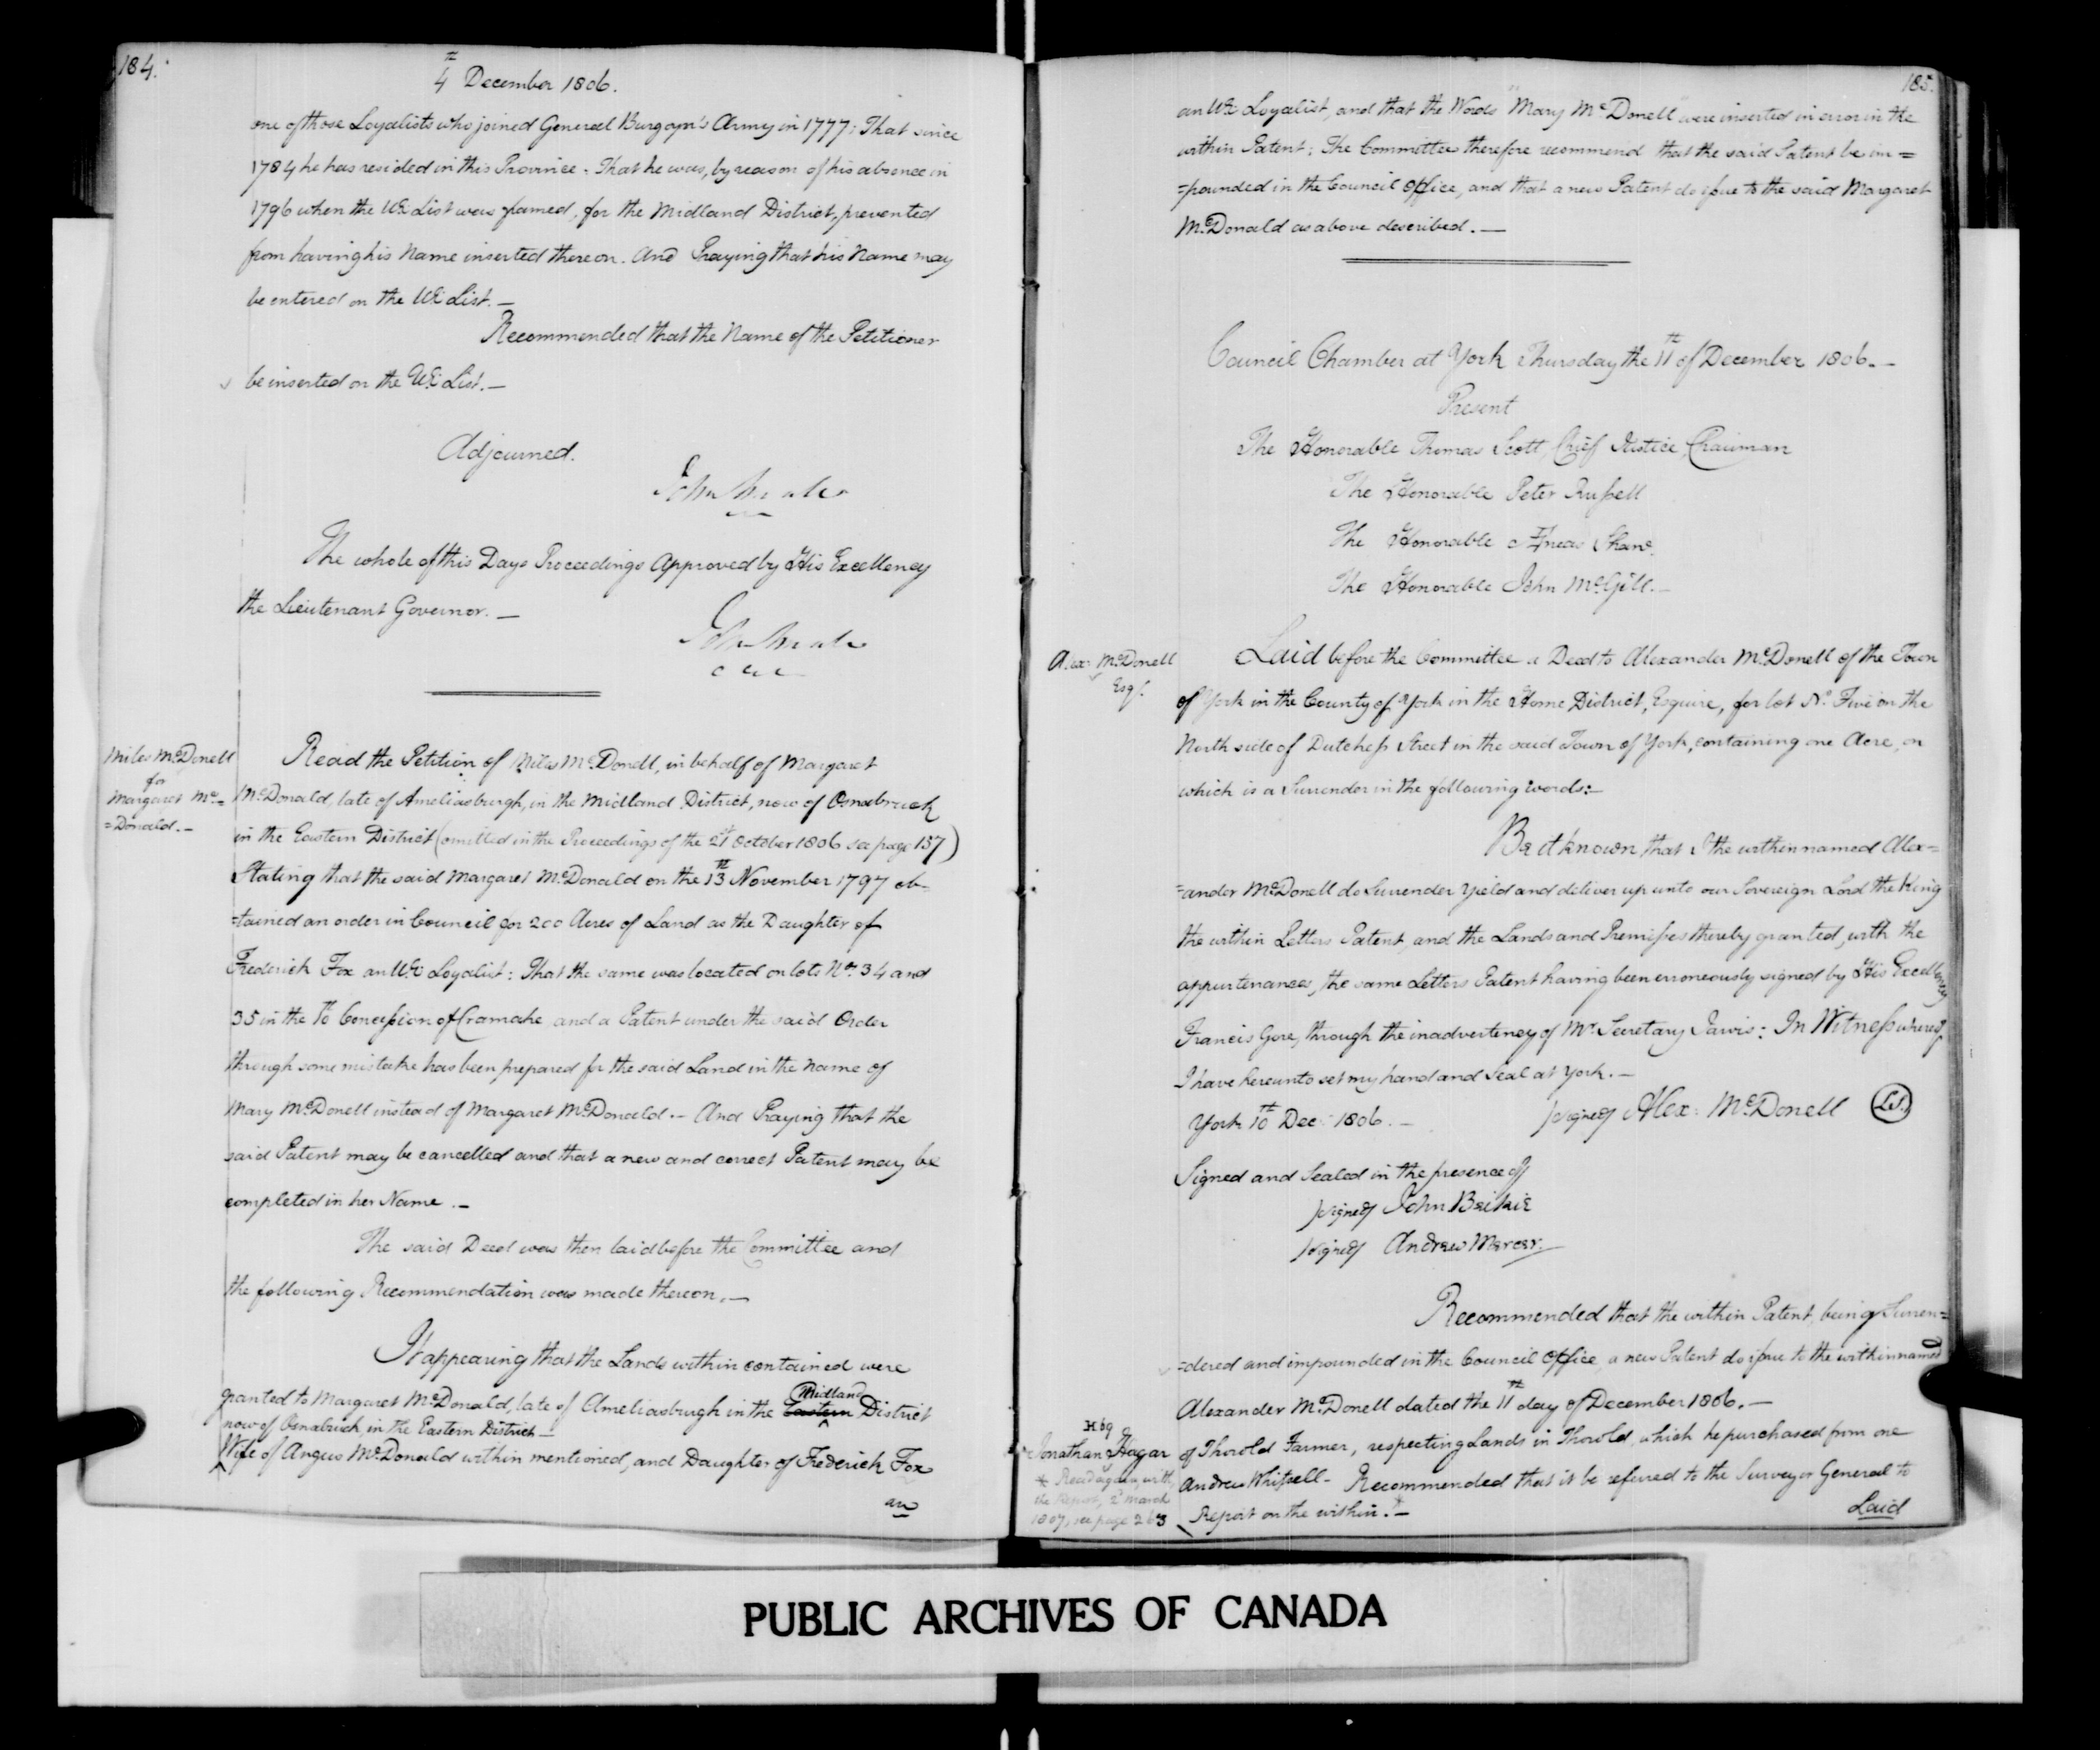 184.
4th December 1806.
one of those Loyalists who joined General Burgoyn's Army in 1777: That since
1784 he has resided in this Province. That he was, by reason of his absence in
1796 when the UE List was framed, for the Midland District, prevented
from having his Name inserted thereon. And Praying that his Name may
be entered on the UE List. —
Recommended that the Name of the Petitioner
be inserted on the UE List. —
Adjourned.
The whole of this Days Proceedings Approved by His Excellency
the Lieutenant Governor. —
Miles McDonell
for
Margaret Mc=
=Donald. —
Read the Petition of Miles McDonell, in behalf of Margaret
McDonald, late of Ameliasburgh, in the Midland District, now of Osnabruck
in the Eastern District (omitted in the Proceedings of the 21st October 1806 see page 157)
Stating that the said Margaret McDonald on the 13th November 1797 ob=
=tained an order in Council for 200 Acres of Land as the Daughter of
Frederick Fox an UE Loyalist: That the same was located on lots Nos. 34 and
35 in the 10th Concession of Cramahe and a Patent under the said Order
through some mistake has been prepared for the said Land in the Name of
Mary McDonell instead of Margaret McDonald. — And Praying that the
said Patent may be cancelled and that a new and correct Patent may be
completed in her Name. —
The said Deed was then laid before the Committee and
the following Recommendation was made thereon. —
It appearing that the Lands within contained were
granted to Margaret McDonald, late of Ameliasburgh in the Eastern Midland District
now of Osnabruck, in the Eastern District —
Wife of Angus McDonald within mentioned, and Daughter of Frederick Fox
an
185.
an UE Loyalist, and that the Words "Mary McDonell" were inserted in error in the
within Patent; The Committee therefore recommend that the said Patent be im=
=pounded in the Council Office, and that a new Patent do issue to the said Margaret
McDonald as above described. —
Council Chamber at York Thursday the 11th of December 1806. —
Present
The Honorable Thomas Scott, Chief Justice, Chairman
The Honorable Peter Russell
The Honorable Æneas Shaw.
The Honorable John McGill. —
Alex: McDonell
Esqr.
Laid before the Committee a Deed to Alexander McDonell of the Town
of York in the County of York in the Home District, Esquire, for lot No. Five on the
North side of Dutchess Street in the said Town of York, containing one Acre, on
which is a Surrender in the following words: —
Be it known, that I the within named Alex=
=ander McDonell do Surrender Yield and deliver up unto our Sovereign Lord the King
the within Letters Patent, and the Lands and Premisses thereby granted, with the
appurtenances, the same Letters Patent having been erroneously signed by His Excellency
Francis Gore, through the inadvertency of Mr. Secretary Jarvis: In Witness whereof
I have hereunto set my hand and Seal at York. —
York 10th Dec: 1806. — signed Alex: McDonell LS.
Signed and Sealed in the presence of
signed John Beikie
signed Andrew Mercer.
Recommended that the within Patent, being Surren=
=dered and impounded in the Council Office, a new Patent do issue to the within named
Alexander McDonell dated the 11th day of December 1806. —
H 69
Jonathan Hagar
* Read again with
the Report, 2d March
1807, see page 263
of Thorold Farmer, respecting Lands in Thorold, which he purchased from one
Andrew Whitsell - Recommended that it be referred to the Surveyor General to
Report on the within. * —
Laid
PUBLIC ARCHIVES OF CANADA